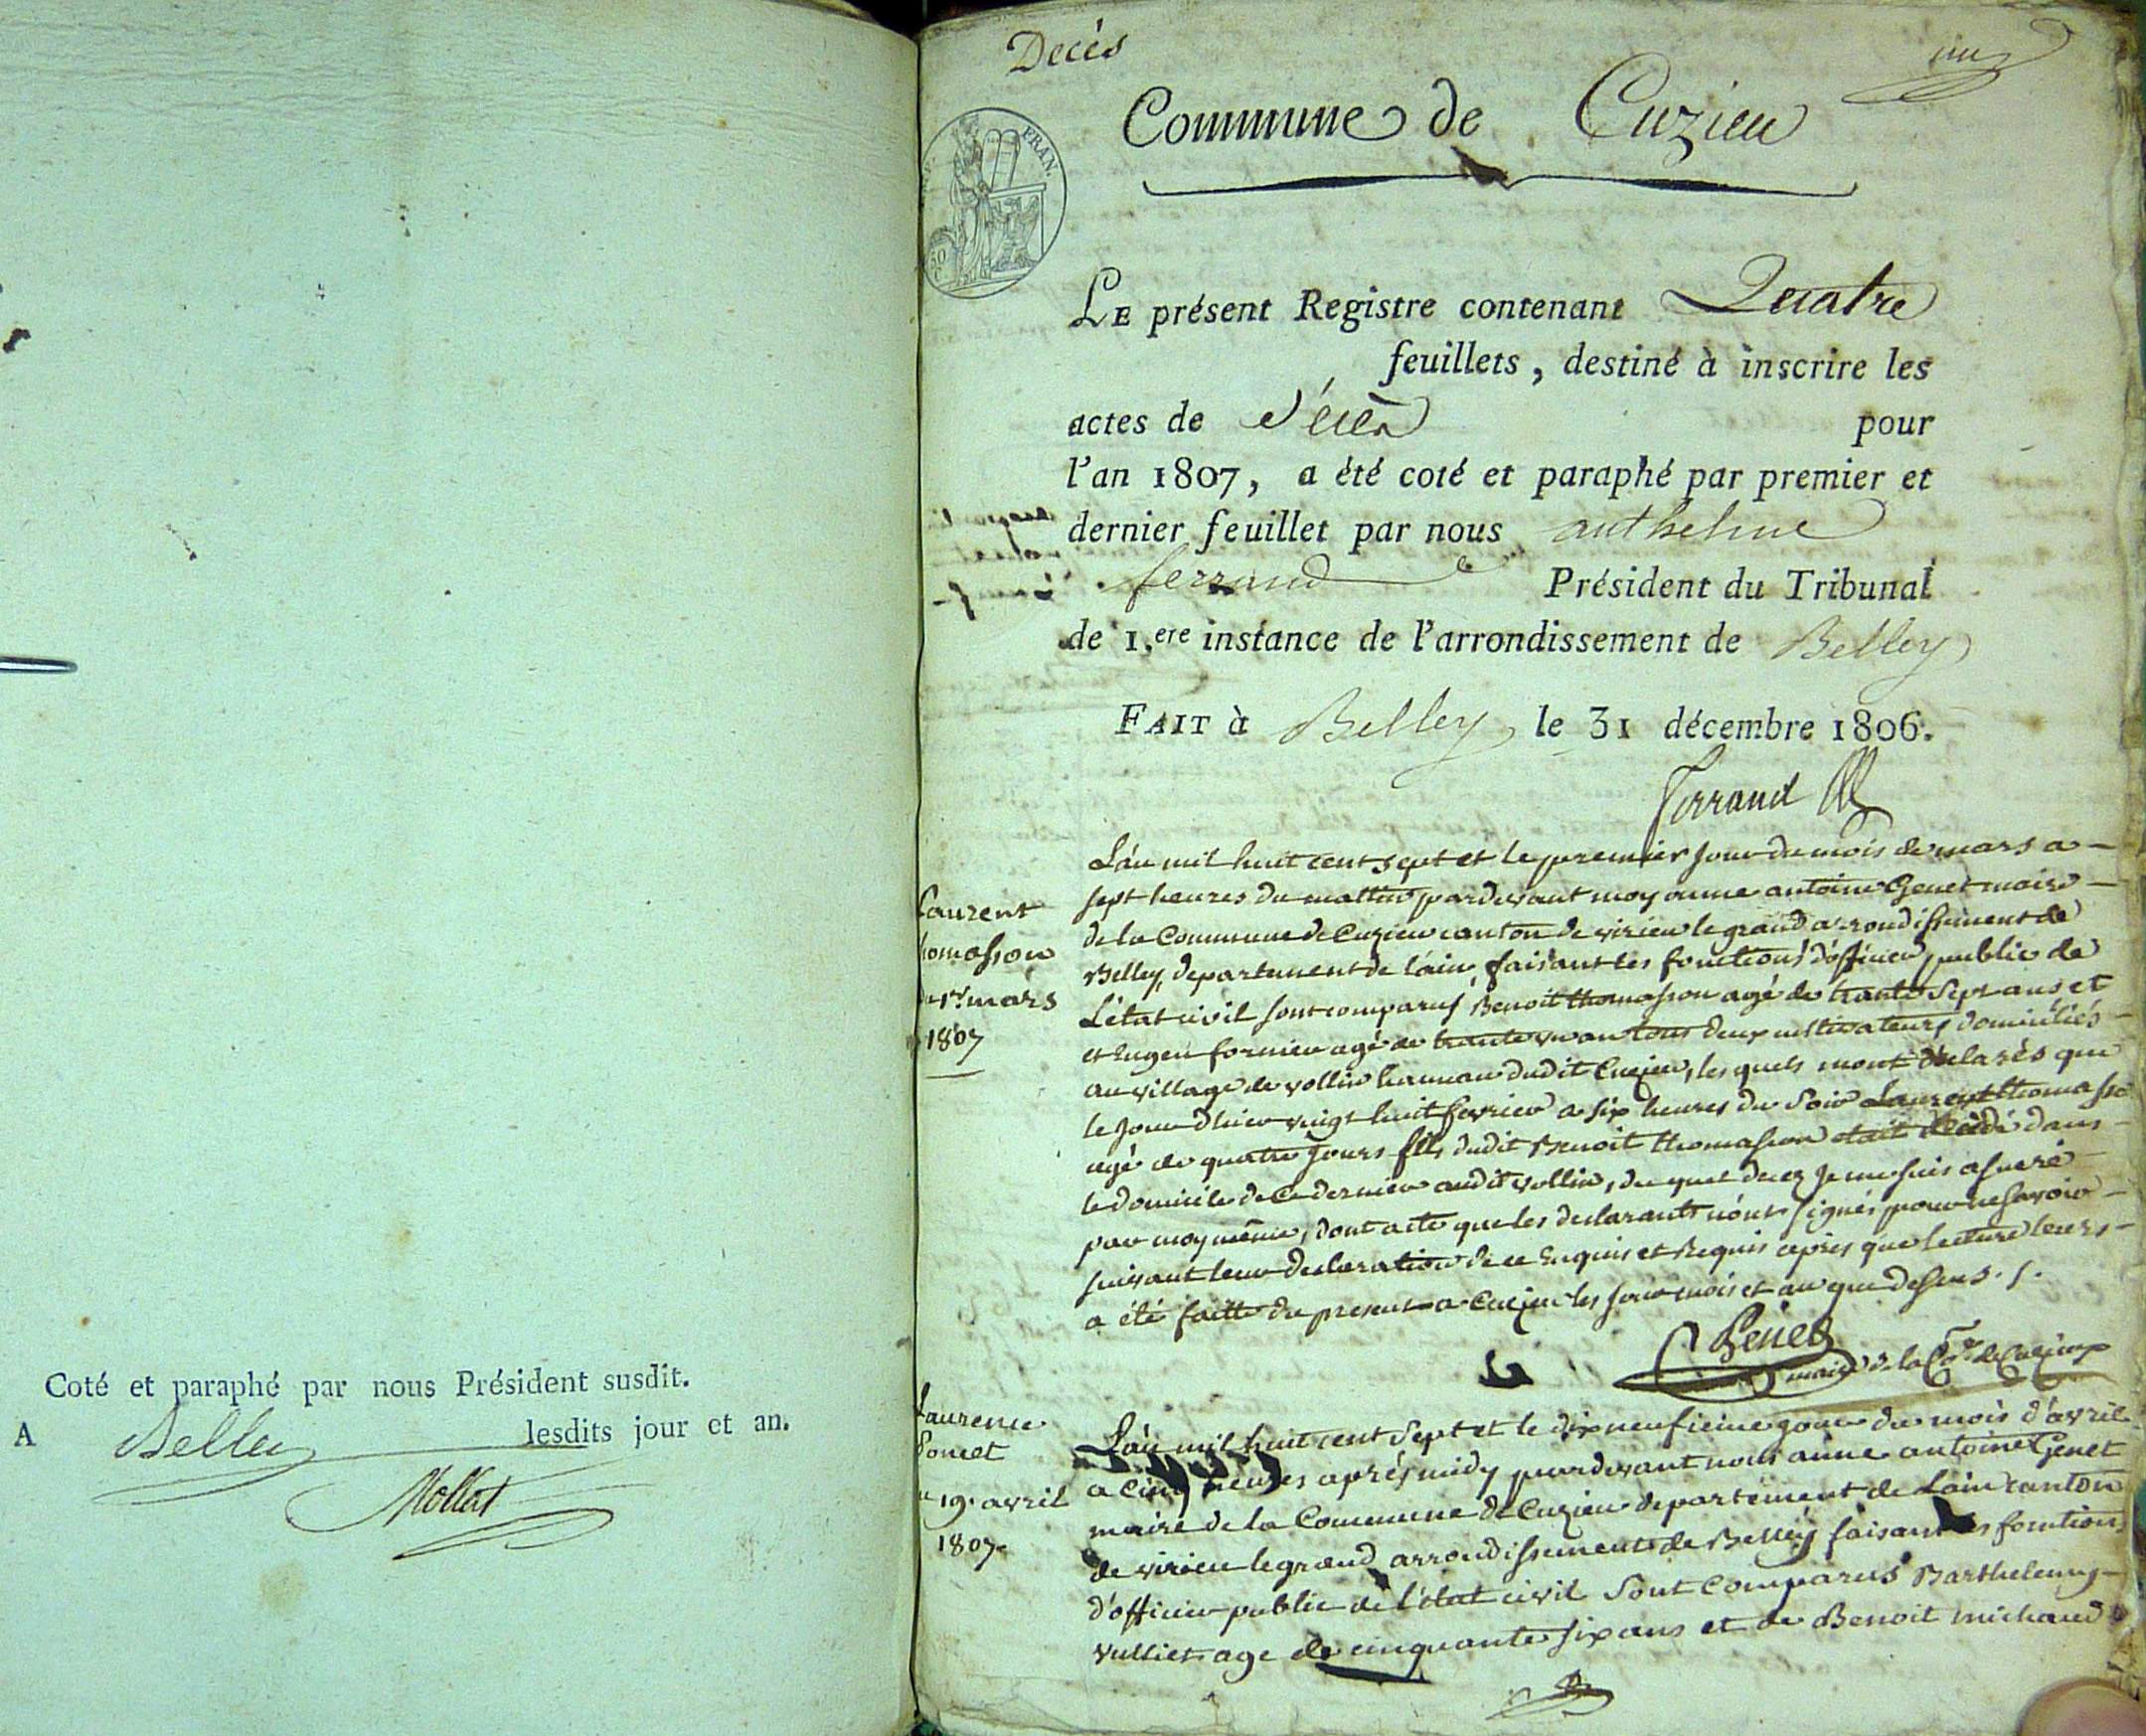 Coté et paraphé par nous Président susdit.
A Belley lesdits jour et an.
Mollat
Decés
un
Commune de Cuzieu
FRAN.
50
C
LE présent Registre contenant Quatre
feuillets, destiné à inscrire les
actes de décès pour
l'an 1807, a été coté et paraphé par premier et
dernier feuillet par nous anthelme
ferrand Président du Tribunal
de 1.ere instance de l'arrondissement de Belley
FAIT à Belley, le 31 décembre 1806.
Ferrand
Laurent
homasson
du 1er mars
1807
L'an mil huit cent sept et le premier jour du mois de mars a
sept heures du mattin pardevant moy anne antoine Genet maire
de la Commune de Cuzieu canton de virieu le grand arrondissement de
Belley, departement de l'ain, faisant les fonctions d'officier public de
L'état civil sont comparus Benoit thomasson agé de trante sept ans et
et Eugen fornier agé de trante un an tous deux cultivateurs domiciliés
au village de vollin hameau dudit Cuzieu, les quels mont déclarés que
le jour d'hier vingt huit fevrier a six heures du soir Laurent thomasso
agé de quatre jours fils dudit Benoit thomasson etait décédé dans
le domicile de ce dernier audit vollin, du quel decez je me suis assuré
par moy même, dont acte que les declarants n'ont signés pour ne savoir
suivant leur declaration de ce Enquis et Requis après que lecture leurs
a été faitte du present a Cuzieu les jour mois et an que dessus.
Genet
maire de la Cne de Cuzieu
Laurence
Poncet
19. avril
1807.
L'an mil huit cent sept et le dix neufieme jour du mois d'avril
a cinq heures après midy pardevant nous anne antoine Genet
maire de la Commune de Cuzieu departement de Lain canton
de virieu le grand arrondissement de Belley faisant les fonctions
d'officier public de l'état civil Sont comparus Barthelemy
vulliet age de cinquante six ans et de Benoit michaud